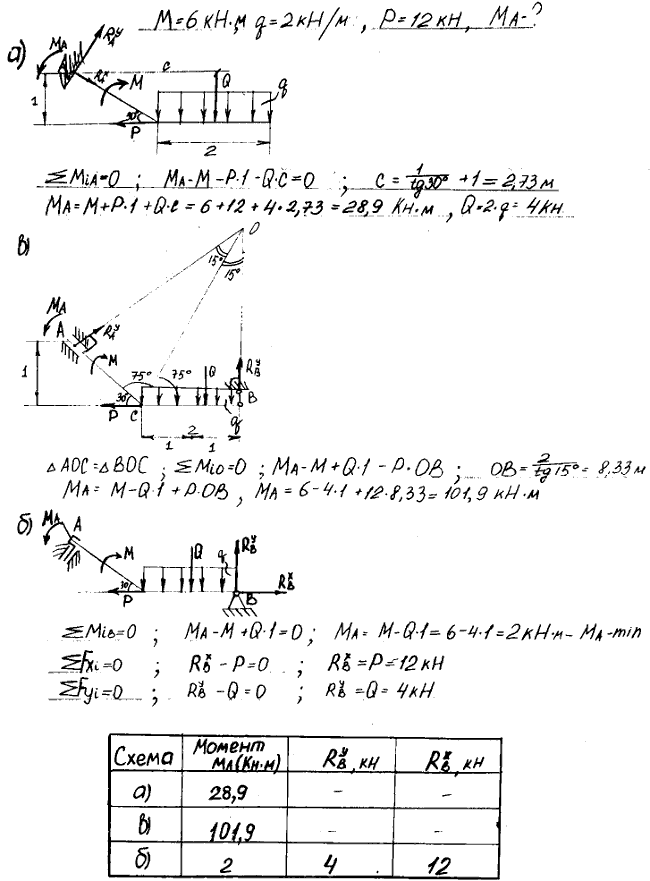 M=6кН·м, q=2кН/м, P=12кН, MA-?
а)
MA
RAʸ
A
RAˣ
M
c
Q
q
1
30°
P
2
ΣMiA=0 ; MA-M-P·1-Q·C=0 ; C=1/tg30°+1=2,73м
MA=M+P·1+Q·c=6+12+4·2,73=28,9 кН·м, Q=2·q=4кН
в)
O
15°
15°
MA
A
RAʸ
M
1
75°
75°
Q
RBʸ
30°
P
C
q
B
2
1
1
△AOC=△BOC ; ΣMiO=0 ; MA-M+Q·1-P·OB ; OB=2/tg15°=8,33м
MA=M-Q·1+P·OB, MA=6-4·1+12·8,33=101,9 кН·м
б)
MA
A
M
Q
q
RBʸ
30°
P
B
RBˣ
ΣMiB=0 ; MA-M+Q·1=0 ; MA=M-Q·1=6-4·1=2кН·м-MA-min
ΣFxi=0 ; RBˣ-P=0 ; RBˣ=P=12кН
ΣFyi=0 ; RBʸ-Q=0 ; RBʸ=Q=4кН
Схема Момент MA(Кн·м) RBʸ, кН RBˣ, кН
а) 28,9 - -
в) 101,9 - -
б) 2 4 12